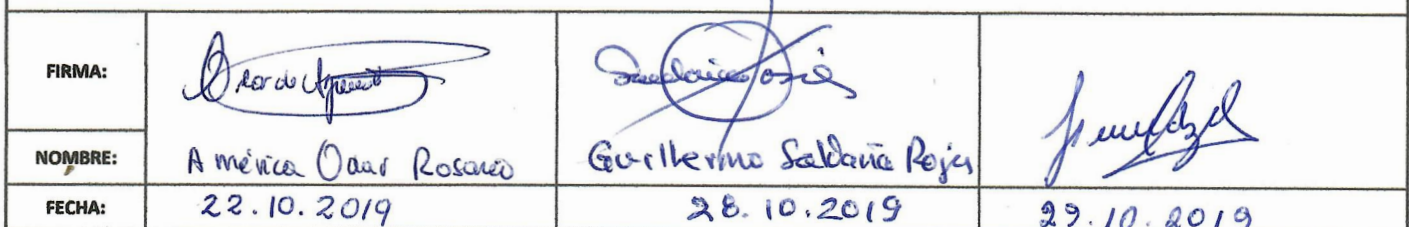 FIRMA:
NOMBRE: América Omar Rosario Guillermo Saldaña Rojas
FECHA: 22.10.2019 28.10.2019 29.10.2019